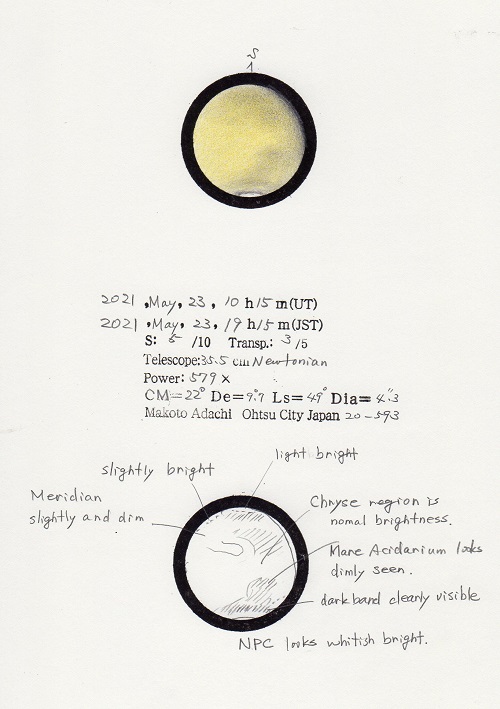 S
2021 , May, 23, 10 h 15 m (UT)
2021 , May, 23, 19 h 15 m (JST)
S: 5 /10 Transp.: 3 /5
Telescope: 35.5 cm Newtonian
Power: 579 ×
CM=22° De=9.°7 Ls=49° Dia=4."3
Makoto Adachi Ohtsu City Japan 20-593
light bright
slightly bright
Meridian
slightly and dim
Chryse region is
nomal brightness.
Mare Acidarium looks
dimly seen.
dark band clearly visible
NPC looks whitish bright.